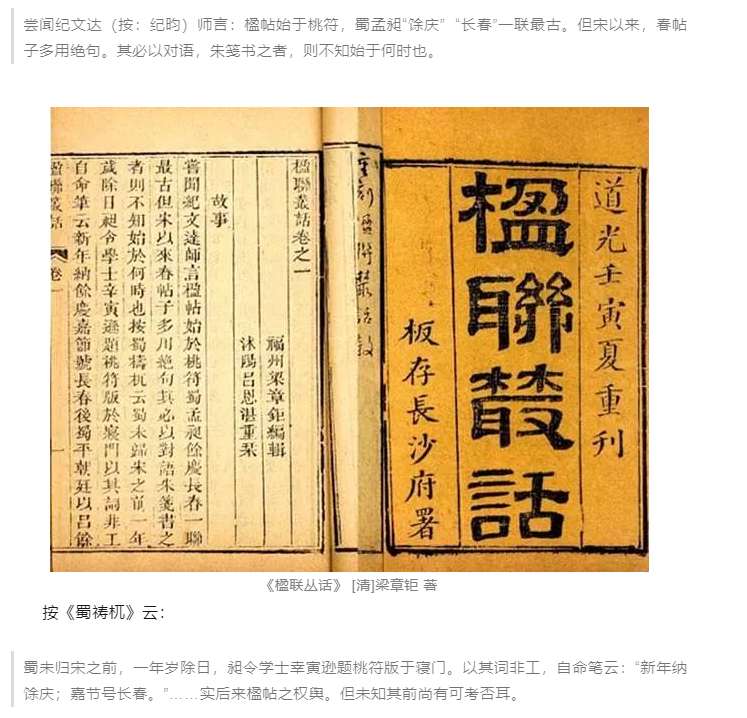 尝闻纪文达（按：纪昀）师言：楹帖始于桃符，蜀孟昶“馀庆” “长春”一联最古。但宋以来，春帖
子多用绝句。其必以对语，朱笺书之者，则不知始于何时也。
道光壬寅夏重刊
楹聯叢話
板存長沙府署
楹聯叢話卷之一
福州梁章鉅編輯
沭陽呂恩湛重栞
故事
嘗聞紀文達師言楹帖始於桃符蜀孟昶餘慶長春一聯
最古但宋以來春帖子多用絕句其必以對語朱箋書之
者則不知始於何時也按蜀檮杌云蜀未歸宋之前一年
歲除日昶令學士辛寅遜題桃符版於寢門以其詞非工
自命筆云新年納餘慶嘉節號長春後蜀平朝廷以呂餘
楹聯叢話 卷一
《楹联丛话》 [清]梁章钜 著
按《蜀祷杌》云：
蜀未归宋之前，一年岁除日，昶令学士幸寅逊题桃符版于寝门。以其词非工，自命笔云：“新年纳
馀庆；嘉节号长春。”……实后来楹帖之权舆。但未知其前尚有可考否耳。